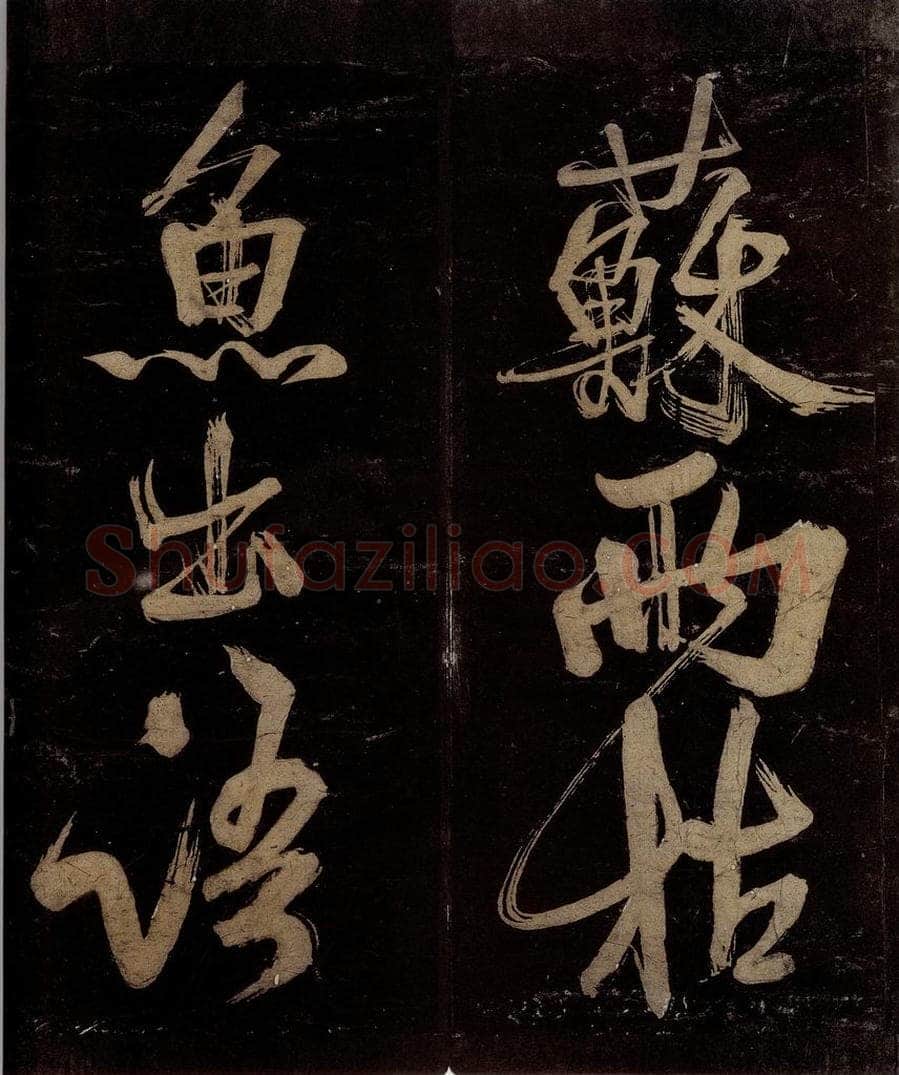 蘇兩枯
魚出語
Shufaziliao.COM